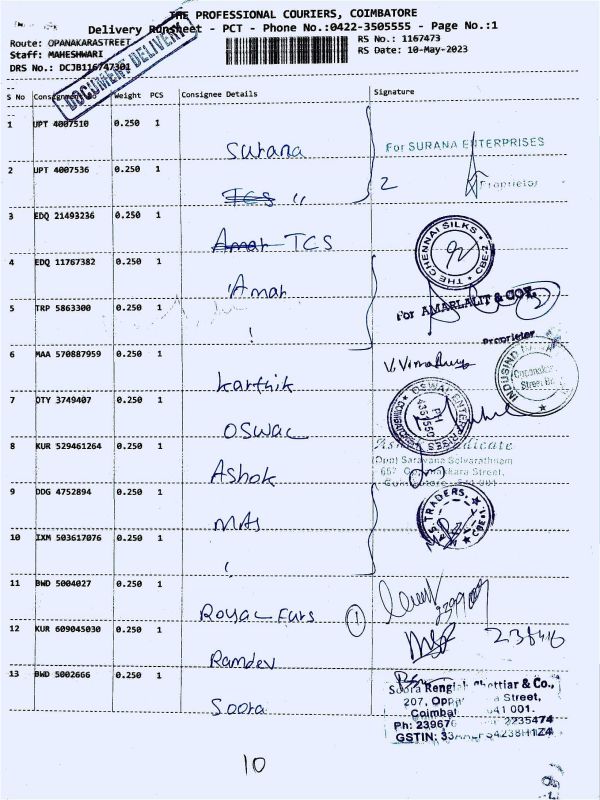 THE PROFESSIONAL COURIERS, COIMBATORE
Delivery Runsheet - PCT - Phone No.:0422-3505555 - Page No.:1
Route: OPANAKARASTREET
RS No.: 1167473
Staff: MAHESHWARI
RS Date: 10-May-2023
DRS No.: DCJB116747301
DOCUMENT DELIVERY
S No Consignment No Weight PCS Consignee Details Signature
1 UPT 4007510 0.250 1 Surana
For SURANA ENTERPRISES
2 UPT 4007536 0.250 1 TCS "
2 Proprietor
3 EDQ 21493236 0.250 1 Amar TCS
THE CHENNAI SILKS CBE-2
4 EDQ 11767382 0.250 1 Amar
For AMARLALIT & COY.
5 TRP 5863300 0.250 1
Proprietor
6 MAA 570887959 0.250 1 Karthik
INDUSIND
Street Br.
7 OTY 3749407 0.250 1 OSWAL
OSWAL ENTERPRISES
COIMBATORE
PH
4351550
8 KUR 529461264 0.250 1 Ashok
(Opp) Saravana Selvarathnam
657 Oppanakkara Street,
Coimbatore - 641 001
9 DDG 4752894 0.250 1 MAS
TRADERS
CBE-1
10 IXM 503617076 0.250 1
11 BWD 5004027 0.250 1 Royal Furs 1
12 KUR 609045030 0.250 1 Ramdev
13 BWD 5002666 0.250 1 Soora
Soora Rengiah Chettiar & Co.,
207, Street,
Coimbat 641 001.
Ph: 23967 2235474
GSTIN: 33
10